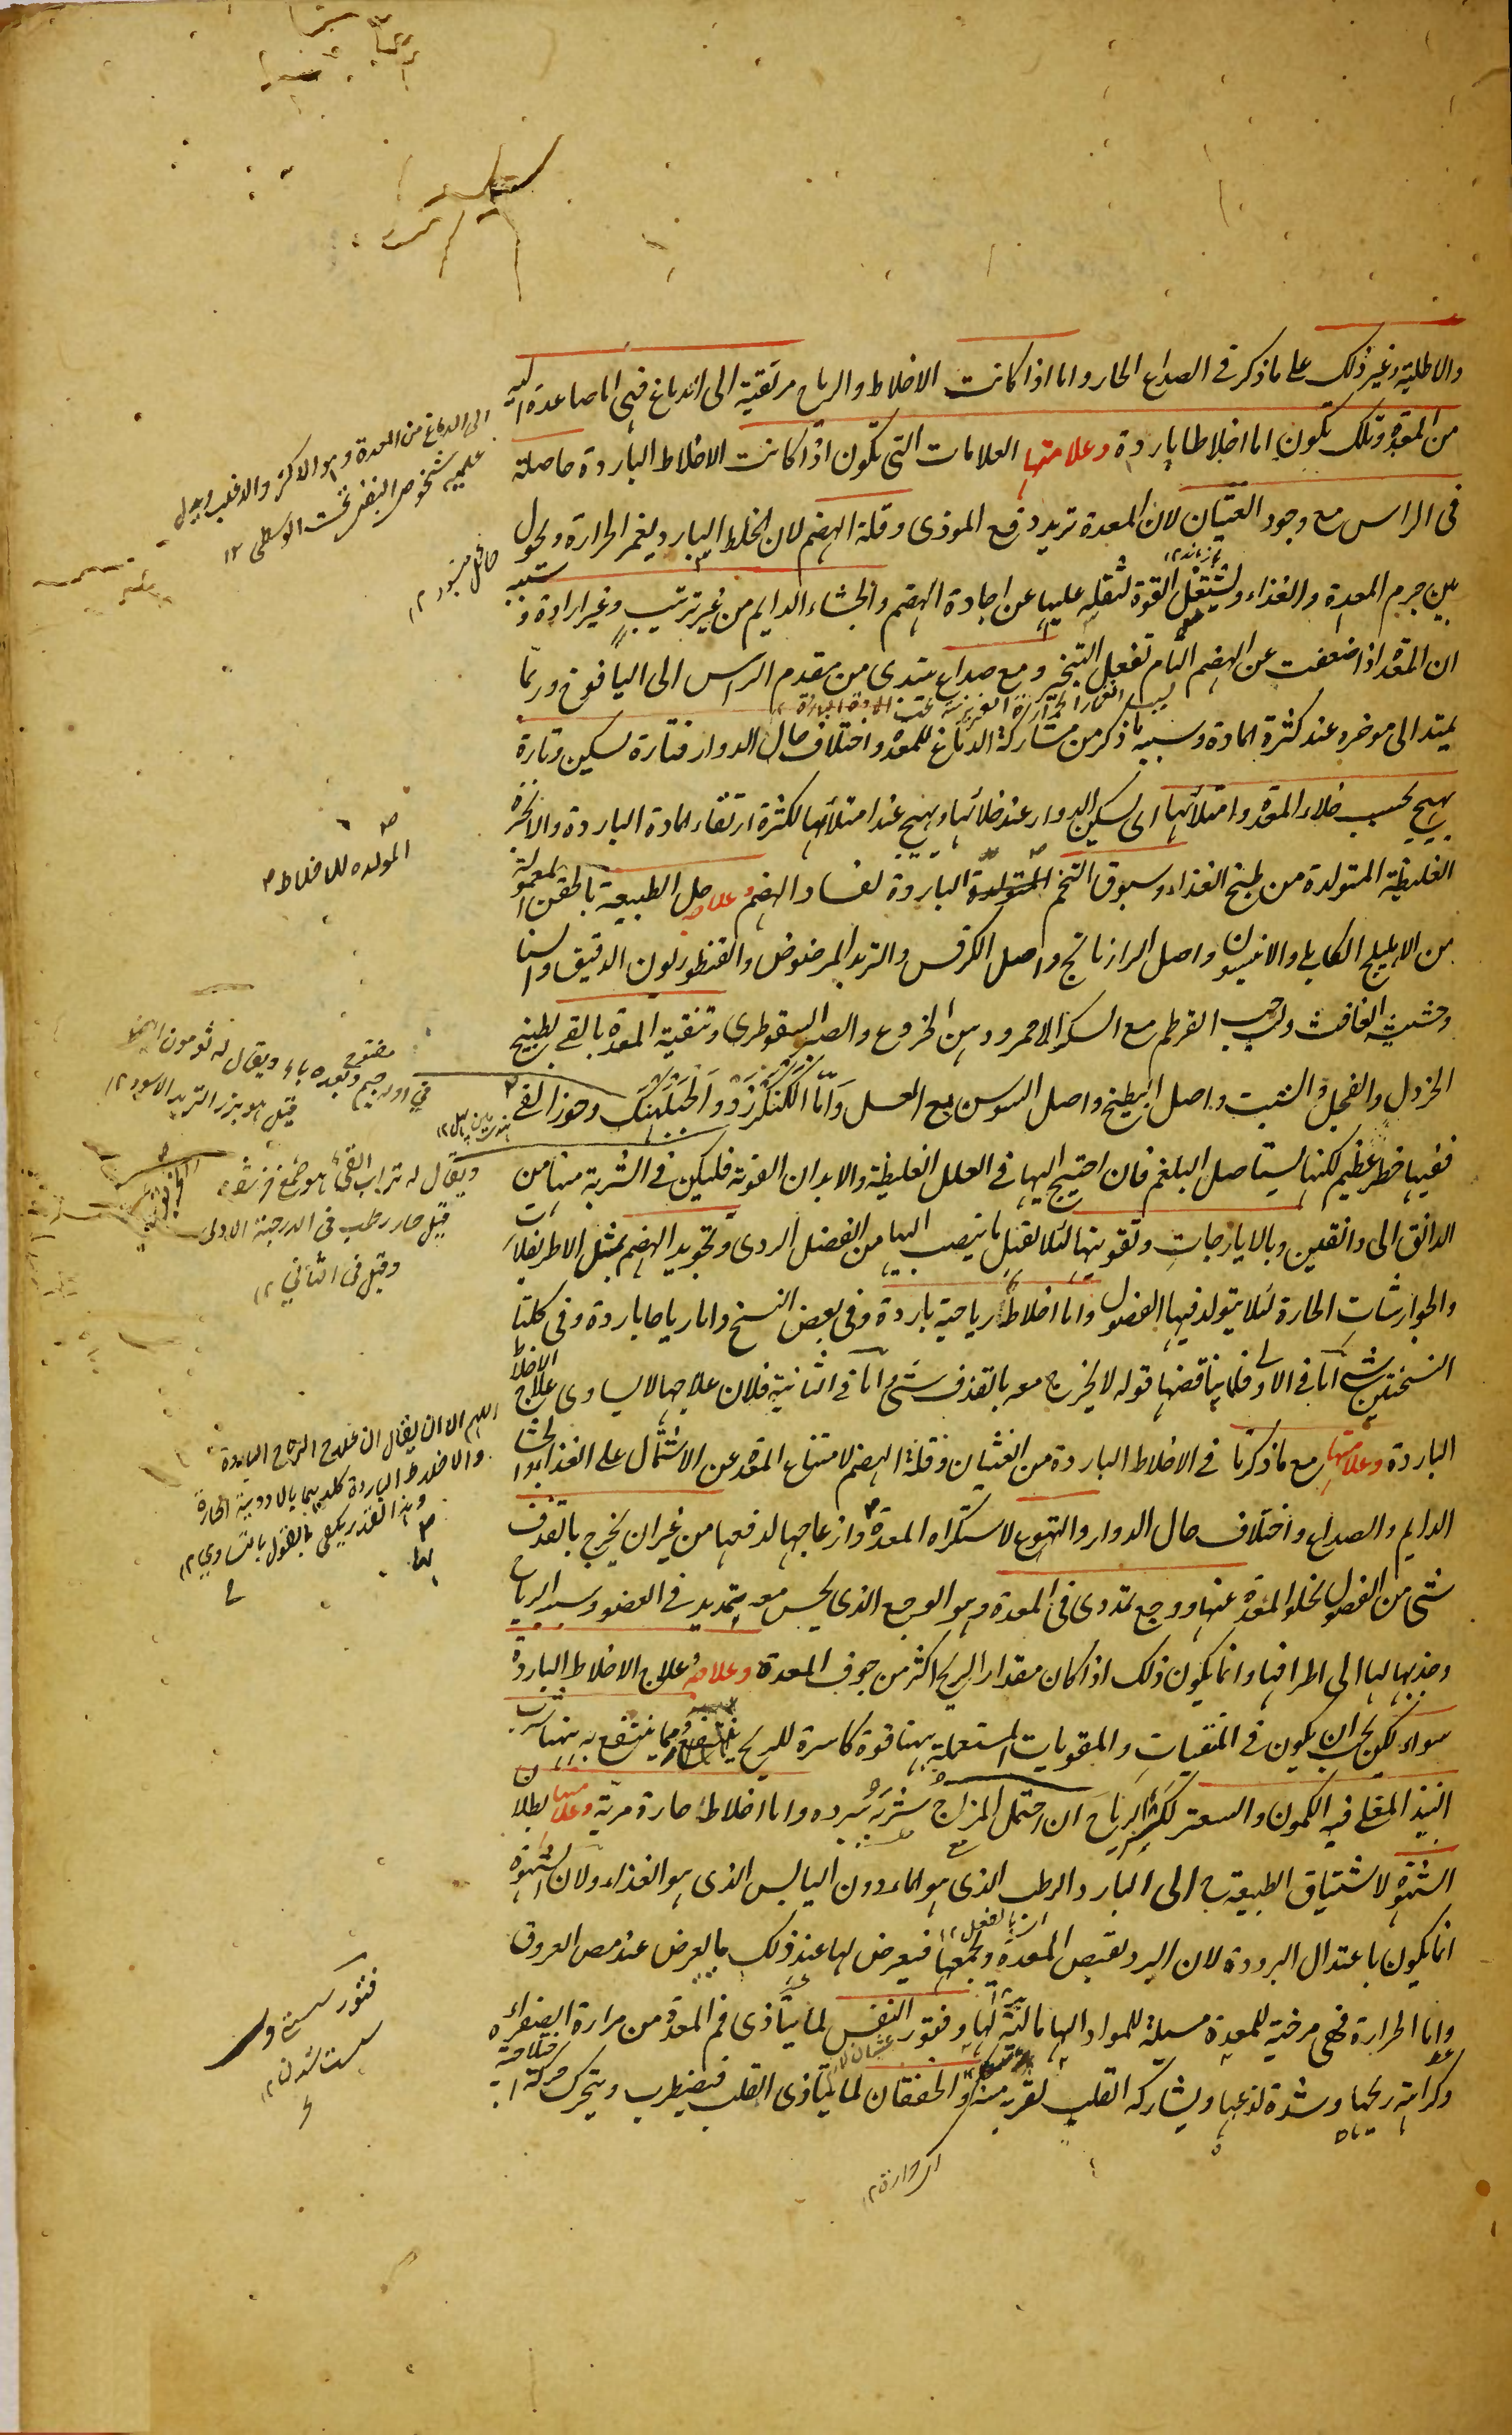 والاطلية وغير ذلك على ما ذكر فى الصداع الحار واما اذا كانت الاخلاط والرياح مرتقية الى الدماغ فهى اما صاعدة اليه
من المعدة وتلك تكون اما اخلاطا باردة وعلامتها العلامات التى تكون اذا كانت الاخلاط الباردة حاصلة
فى الراس مع وجود الغثيان لان المعدة تريد دفع الموذى وقلة الهضم لان الخلط البارد يغمر الحرارة ويحول
بين جرم المعدة والغذاء ويشتغل القوة لثقله عليها عن اجادة الهضم والجشاء الدايم من غير ترتيب وغير ارادة و
ان المعدة اذا ضعفت عن الهضم التام تفعل التبخير ومع صداع يبتدى من مقدم الراس الى اليافوخ وربما
يمتد الى موخره عند كثرة المادة وسببه ما ذكر من مشاركة الدماغ للمعدة واختلاف حال الدوار فتارة يسكن وتارة
يهيج بحسب خلاء المعدة وامتلائها اى يسكن الدوار عند خلائها ويهيج عند امتلائها لكثرة ارتقاء المادة الباردة والابخرة
الغليظة المتولدة من طبخ الغذاء وسبوق التخم المتولدة الباردة لفساد الهضم وعلاجه حل الطبيعة بالحقن المعمولة
من الاهليلج الكابلى والانيسون واصل الرازيانج واصل الكرفس والتربد المرضوض والقنطوريون الدقيق والسنا
وحشيشة الغافث ولب حب القرطم مع السكر الاحمر ودهن الخروع والصبر السقوطرى وتنقية المعدة بالقى بطبيخ
الخردل والفجل والشبت واصل البطيخ واصل السوسن مع العسل واما الكنكرزد والجبلهنك وجوز القى
ففيها خطر عظيم لكنها يستاصل البلغم فان احتيج اليها فى العلل الغليظة والابدان القوية فليكن فى الشربة منها من
الدانق الى دانقين وبالايارجات وتقويتها لئلا تقبل ما ينصب اليها من الفضل الردى وتجويد الهضم بمثل الاطريفلات
والجوارشات الحارة لئلا يتولد فيها الفضول واما اخلاطا رياحية باردة وفى بعض النسخ واما رياحا باردة وفى كلتا
النسختين شىء اما فى الاولى فلما يناقضها قوله لا يخرج معه بالقذف شىء واما فى الثانية فلان علاجها لا يساوى علاج الاخلاط
الباردة وعلامتها مع ما ذكرنا فى الاخلاط الباردة من الغثيان وقلة الهضم لامتناع المعدة عن الاشتمال على الغذاء والجشاء
الدايم والصداع واختلاف حال الدوار والتهوع لاستكراه المعدة وازعاجها لدفعها من غير ان يخرج بالقذف
شىء من الفضول لخلو المعدة عنها ووجع تمددى فى المعدة وهو الوجع الذى يحس معه بتمديد فى العضو وسببه الرياح
وجذبها لها الى اطرافها وانما يكون ذلك اذا كان مقدار الريح اكثر من جوف المعدة وعلاجه علاج الاخلاط الباردة
سواء لكن يجب ان يكون فى المنقيات والمقويات المستعملة ههنا قوة كاسرة للريح ومما ينتفع به ههنا شرب
النبيذ المغلى فيه الكمون والسعتر لكسر الرياح ان احتمل المزاج شربه وسرده واما اخلاطا حارة مرية وعلامتها بطلان
الشهوة لاشتياق الطبيعة الى البارد الرطب الذى هو الماء دون اليابس الذى هو الغذاء ولان الشهوة
انما يكون باعتدال البرودة لان البرد يقبض المعدة ويجمعها فيعرض لها عند ذلك ما يعرض عند مص العروق
واما الحرارة فهى مرخية للمعدة مسيلة للمواد اليها مالئة لها وفتور النفس لما يتاذى فم المعدة من مرارة الصفراء
وكراهة ريحها وشدة لذعها ويشاركه القلب لقربه منه والخفقان لما يتاذى القلب فيضطرب ويتحرك حركة اختلاجية
الى الدماغ من المعدة وهو الاكثر والاغلب
المولده للاخلاط
فى اوله جيم مفتوح وبعده باء ويقال له
قيل هو بزر التربد الاسود ١٢
ويقال له تراب القى هو صمغ
قيل حار رطب فى الدرجة الاولى
وقيل فى الثانى ١٢
اللهم الا ان يقال ان علاج الرياح الباردة
والاخلاط الباردة كليهما بالادوية الحارة
وهذا القدر يكفى بالقول بالتساوى ١٢
فتور سستى و
سست شدن ١٢